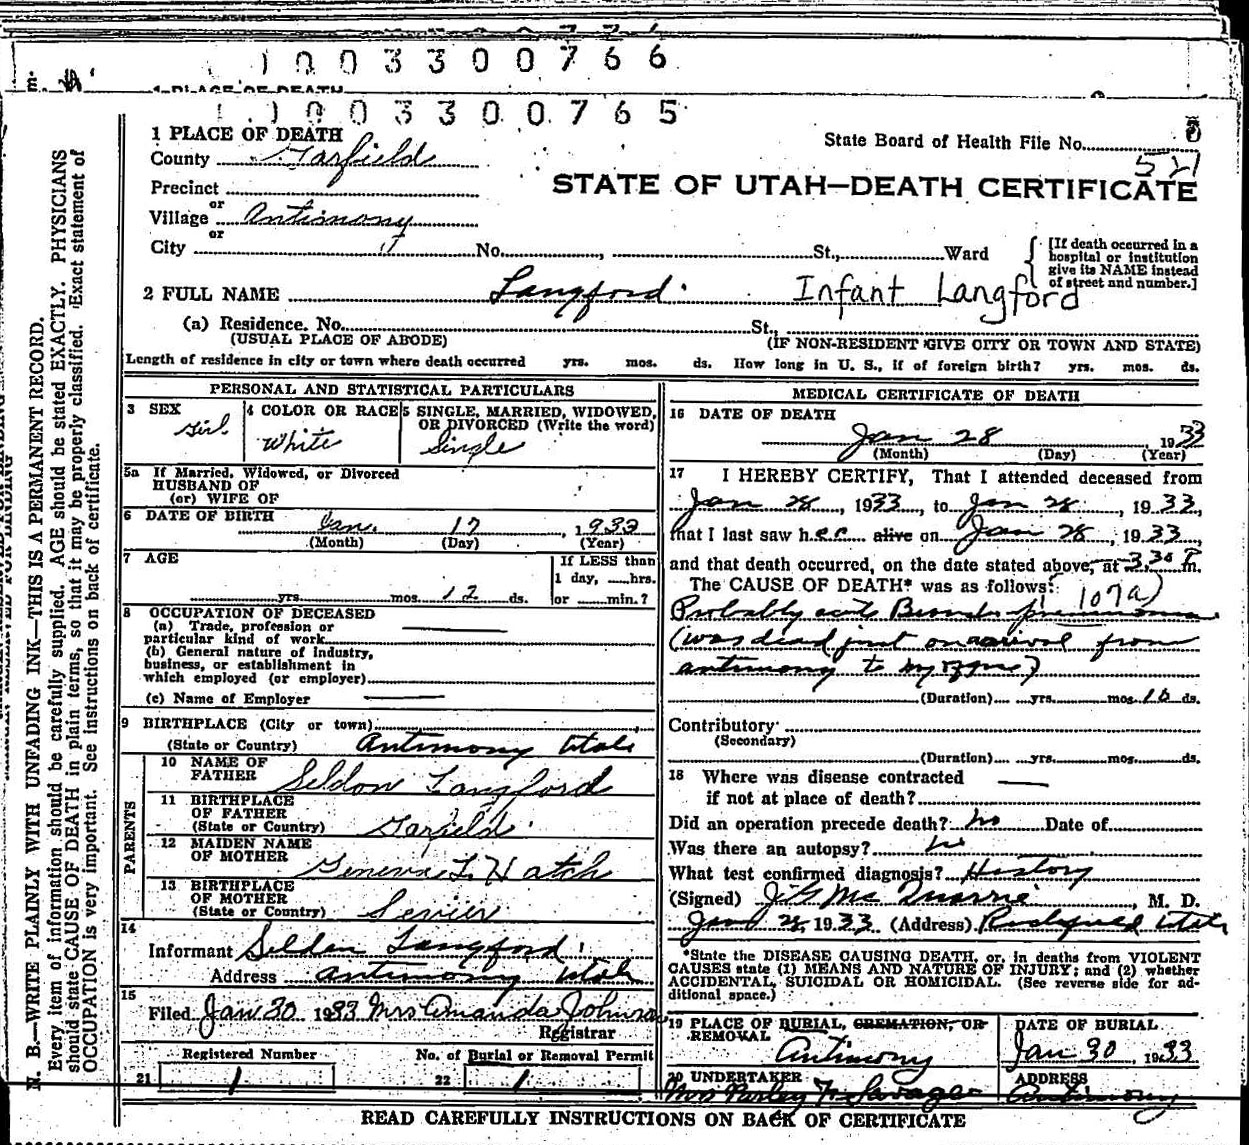 1003300766
1 PLACE OF DEATH
1003300765
1 PLACE OF DEATH
State Board of Health File No.
521
County Garfield
STATE OF UTAH—DEATH CERTIFICATE
Precinct
or
Village Antimony
or
City No. , St., Ward
[If death occurred in a hospital or institution give its NAME instead of street and number.]
2 FULL NAME Langford. Infant Langford
(a) Residence. No. St.,
(USUAL PLACE OF ABODE) (IF NON-RESIDENT GIVE CITY OR TOWN AND STATE)
Length of residence in city or town where death occurred yrs. mos. ds. How long in U. S., if of foreign birth? yrs. mos. ds.
PERSONAL AND STATISTICAL PARTICULARS
3 SEX Girl
4 COLOR OR RACE White
5 SINGLE, MARRIED, WIDOWED, OR DIVORCED (Write the word)
Single
5a If Married, Widowed, or Divorced
HUSBAND OF
(or) WIFE OF
6 DATE OF BIRTH Jan. 17, 1933
(Month) (Day) (Year)
7 AGE
yrs. mos. 12 ds.
If LESS than
1 day, hrs.
or min.?
8 OCCUPATION OF DECEASED
(a) Trade, profession or
particular kind of work
(b) General nature of industry,
business, or establishment in
which employed (or employer)
(c) Name of Employer
9 BIRTHPLACE (City or town)
(State or Country) Antimony Utah
PARENTS
10 NAME OF
FATHER Seldon Langford
11 BIRTHPLACE
OF FATHER
(State or Country) Garfield
12 MAIDEN NAME
OF MOTHER Geneva L. Hatch
13 BIRTHPLACE
OF MOTHER
(State or Country) Sevier
14
Informant Selden Langford
Address Antimony Utah
15
Filed Jan 30 1933 Mrs Amanda Johnson
Registrar
Registered Number
21 1
No. of Burial or Removal Permit
22 1
MEDICAL CERTIFICATE OF DEATH
16 DATE OF DEATH
Jan 28 1933
(Month) (Day) (Year)
17 I HEREBY CERTIFY, That I attended deceased from
Jan 28, 1933, to Jan 28, 1933,
that I last saw her alive on Jan 28, 1933,
and that death occurred, on the date stated above, at 3.30 P.m.
The CAUSE OF DEATH* was as follows: 107a)
Probably acute Broncho pneumonia
(was dead just on arrival from
antimony to my office)
(Duration) yrs. mos. 10 ds.
Contributory
(Secondary)
(Duration) yrs. mos. ds.
18 Where was disease contracted
if not at place of death?
Did an operation precede death? no Date of
Was there an autopsy? no
What test confirmed diagnosis? History
(Signed) J G McQuarrie, M. D.
Jan 28 1933 (Address) Richfield Utah
*State the DISEASE CAUSING DEATH, or, in deaths from VIOLENT
CAUSES state (1) MEANS AND NATURE OF INJURY; and (2) whether
ACCIDENTAL, SUICIDAL OR HOMICIDAL. (See reverse side for ad-
ditional space.)
19 PLACE OF BURIAL, CREMATION, OR
REMOVAL
Antimony
DATE OF BURIAL
Jan 30, 1933
20 UNDERTAKER
Mrs Parley F. Savage
ADDRESS
Antimony
READ CAREFULLY INSTRUCTIONS ON BACK OF CERTIFICATE
N. B.—WRITE PLAINLY WITH UNFADING INK—THIS IS A PERMANENT RECORD.
Every item of information should be carefully supplied. AGE should be stated EXACTLY. PHYSICIANS
should state CAUSE OF DEATH in plain terms, so that it may be properly classified. Exact statement of
OCCUPATION is very important. See instructions on back of certificate.